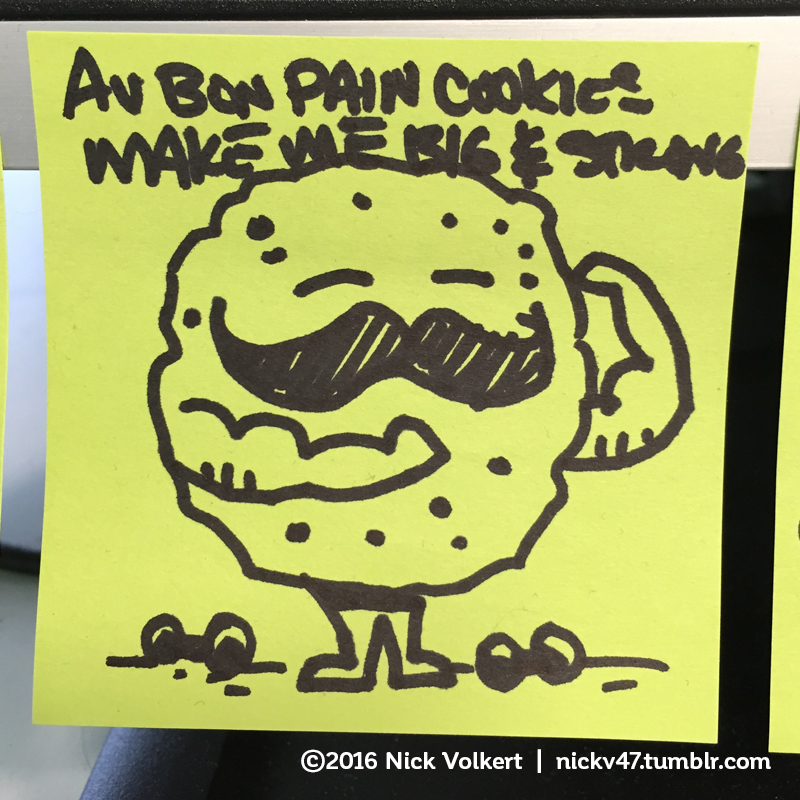 AU BON PAIN COOKIES
MAKE ME BIG & STRONG
©2016 Nick Volkert | nickv47.tumblr.com